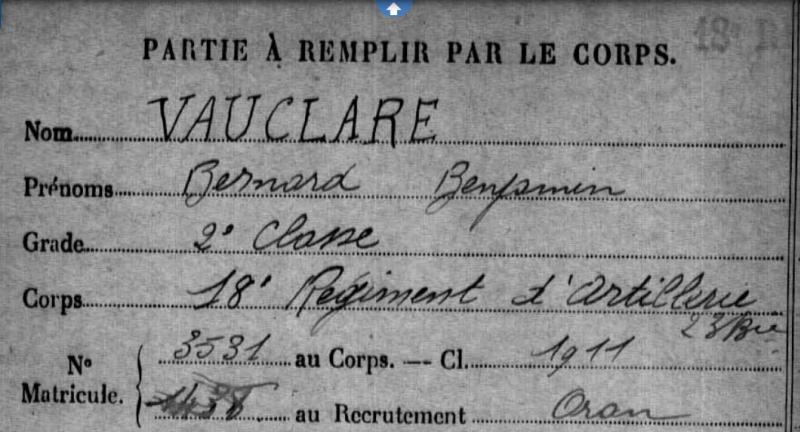 18e R
PARTIE À REMPLIR PAR LE CORPS.
Nom VAUCLARE
Prénoms Bernard Benjamin
Grade 2e Classe
Corps 18e Régiment d'Artillerie
23 Bie
3531 au Corps. — Cl. 1911
No Matricule.
1438 au Recrutement Oran